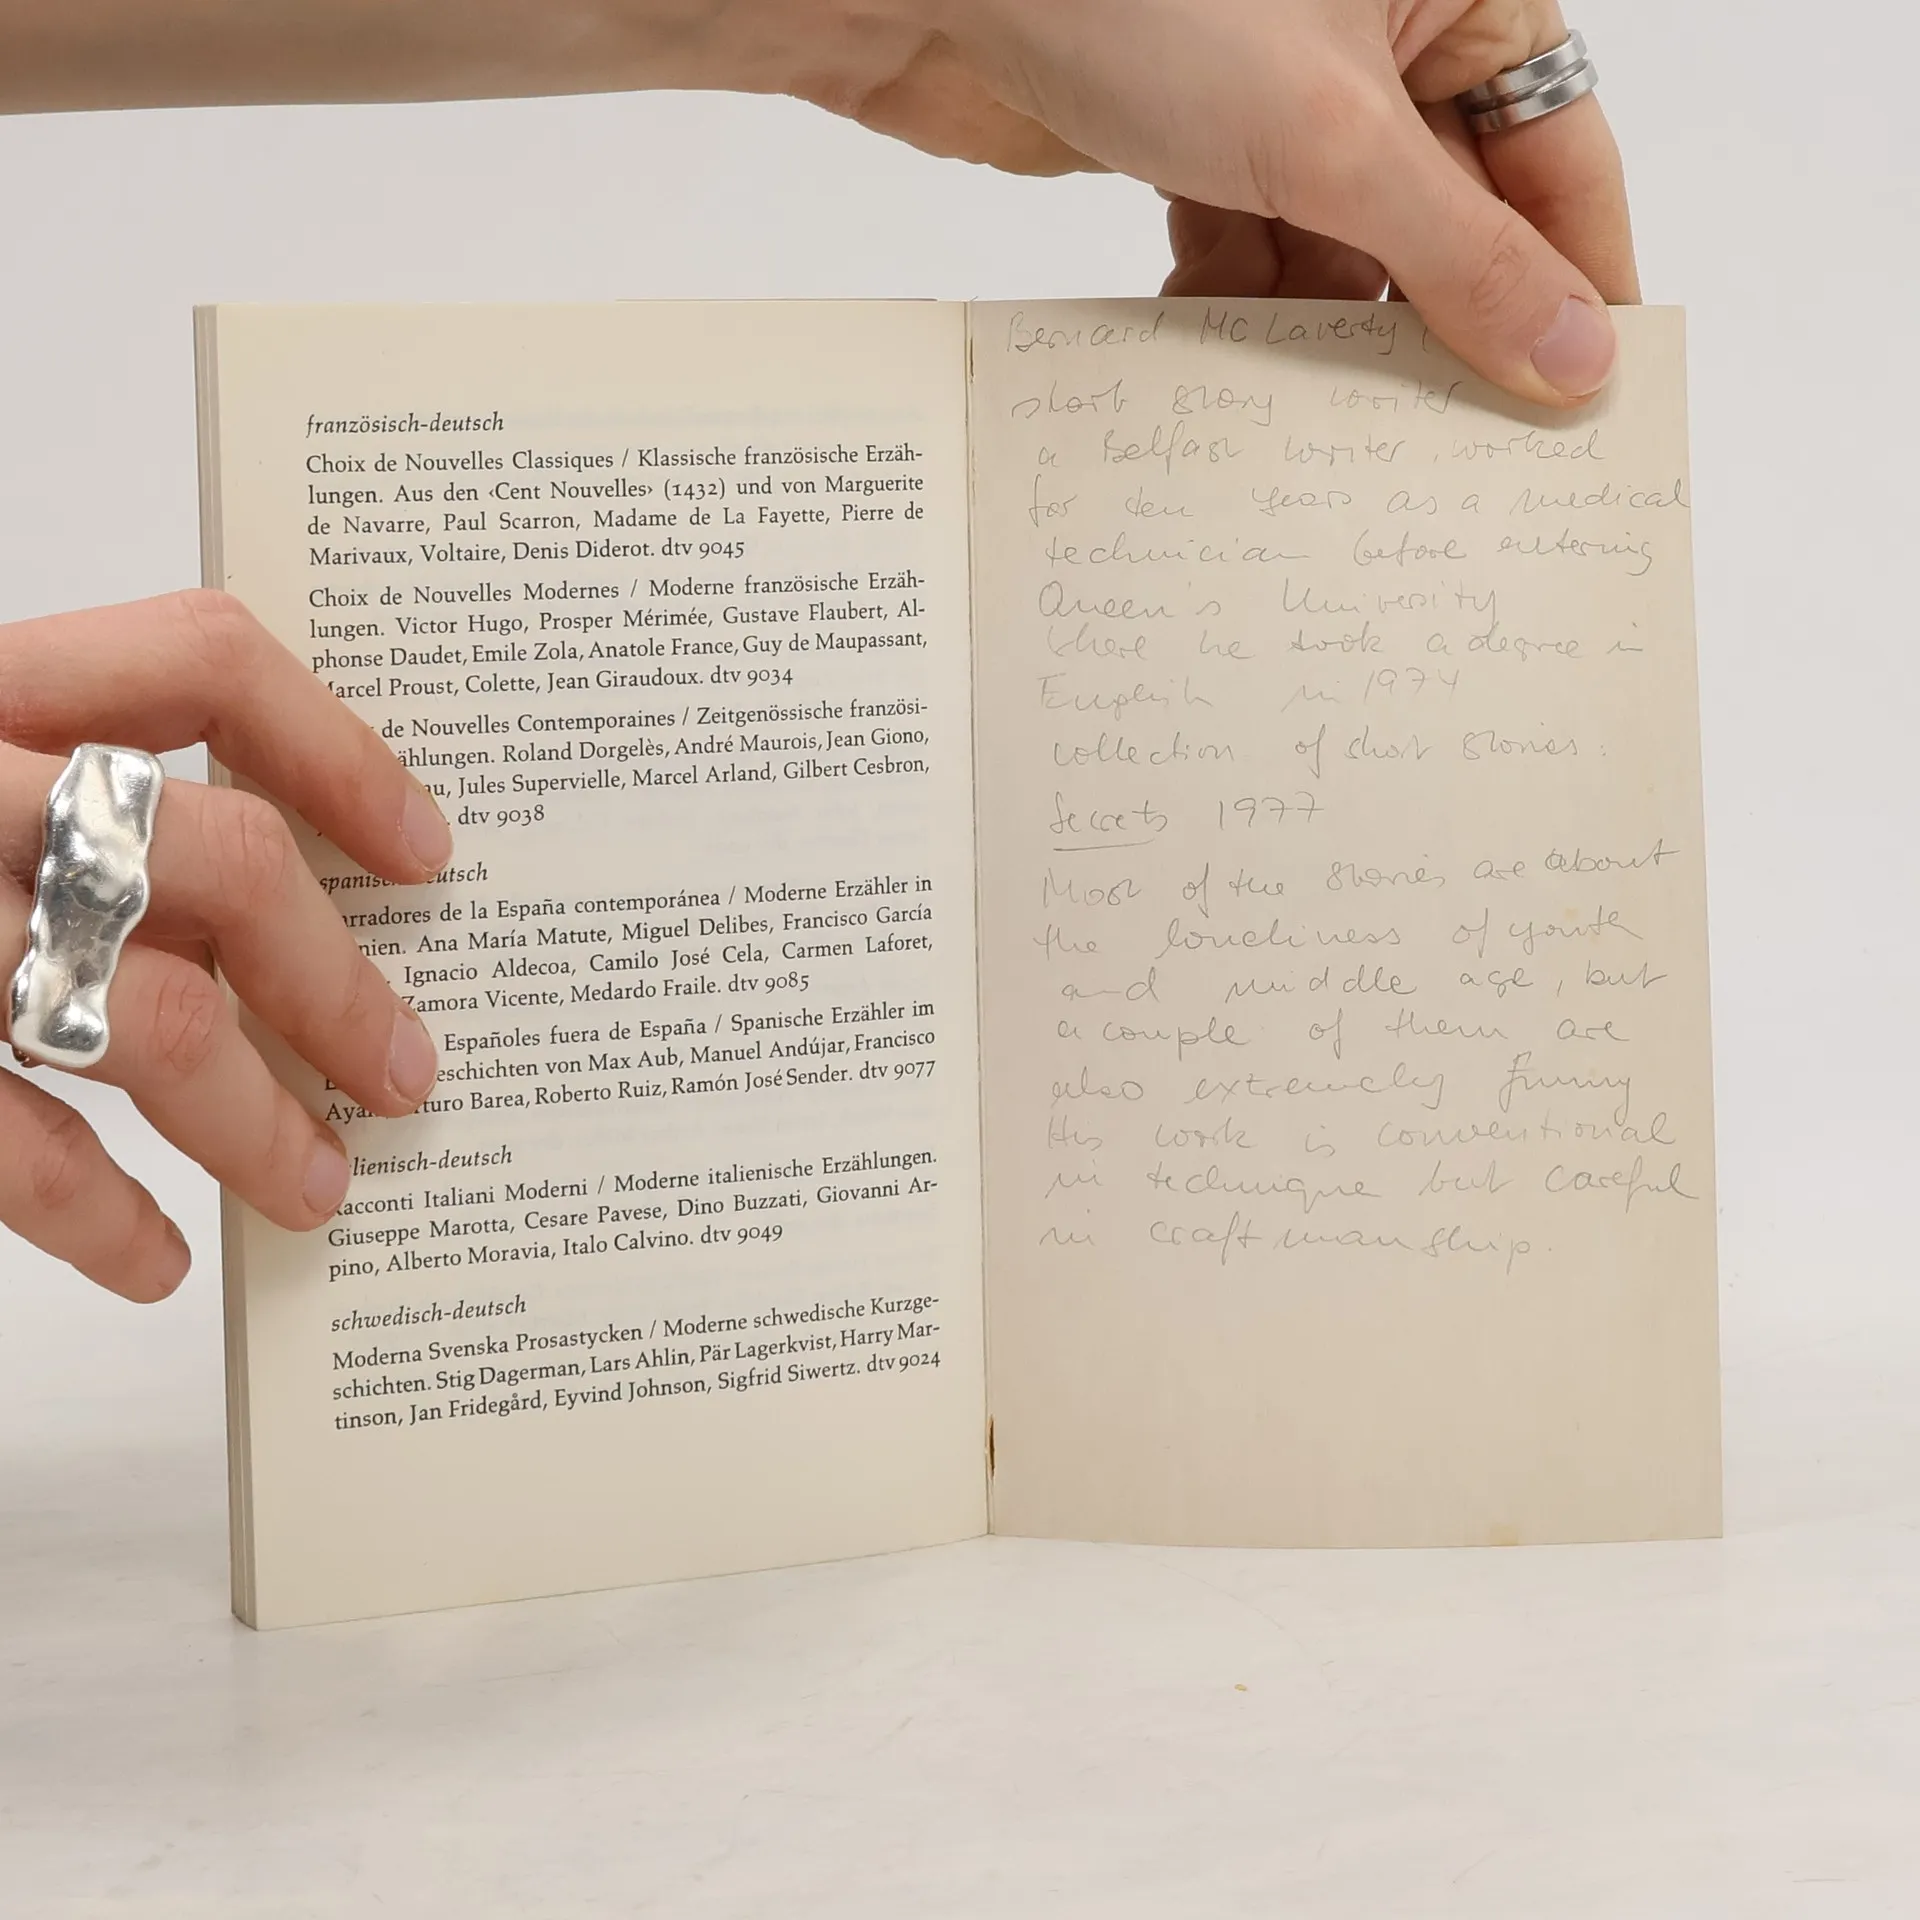 französisch-deutsch
Choix de Nouvelles Classiques / Klassische französische Erzäh-
lungen. Aus den ‹Cent Nouvelles› (1432) und von Marguerite
de Navarre, Paul Scarron, Madame de La Fayette, Pierre de
Marivaux, Voltaire, Denis Diderot. dtv 9045
Choix de Nouvelles Modernes / Moderne französische Erzäh-
lungen. Victor Hugo, Prosper Mérimée, Gustave Flaubert, Al-
phonse Daudet, Emile Zola, Anatole France, Guy de Maupassant,
arcel Proust, Colette, Jean Giraudoux. dtv 9034
de Nouvelles Contemporaines / Zeitgenössische französi-
ählungen. Roland Dorgelès, André Maurois, Jean Giono,
au, Jules Supervielle, Marcel Arland, Gilbert Cesbron,
. dtv 9038
spanis utsch
arradores de la España contemporánea / Moderne Erzähler in
nien. Ana María Matute, Miguel Delibes, Francisco García
Ignacio Aldecoa, Camilo José Cela, Carmen Laforet,
Zamora Vicente, Medardo Fraile. dtv 9085
Españoles fuera de España / Spanische Erzähler im
eschichten von Max Aub, Manuel Andújar, Francisco
Aya rturo Barea, Roberto Ruiz, Ramón José Sender. dtv 9077
lienisch-deutsch
acconti Italiani Moderni / Moderne italienische Erzählungen.
Giuseppe Marotta, Cesare Pavese, Dino Buzzati, Giovanni Ar-
pino, Alberto Moravia, Italo Calvino. dtv 9049
schwedisch-deutsch
Moderna Svenska Prosastycken / Moderne schwedische Kurzge-
schichten. Stig Dagerman, Lars Ahlin, Pär Lagerkvist, Harry Mar-
tinson, Jan Fridegård, Eyvind Johnson, Sigfrid Siwertz. dtv 9024
Bernard Mc Laverty
short story writer
a Belfast writer, worked
for ten years as a medical
technician before entering
Queen's University
where he took a degree in
English in 1974
collection of short stories:
Secrets 1977
Most of the stories are about
the loneliness of youth
and middle age, but
a couple of them are
also extremely funny
His work is conventional
in technique but careful
in craftmanship.